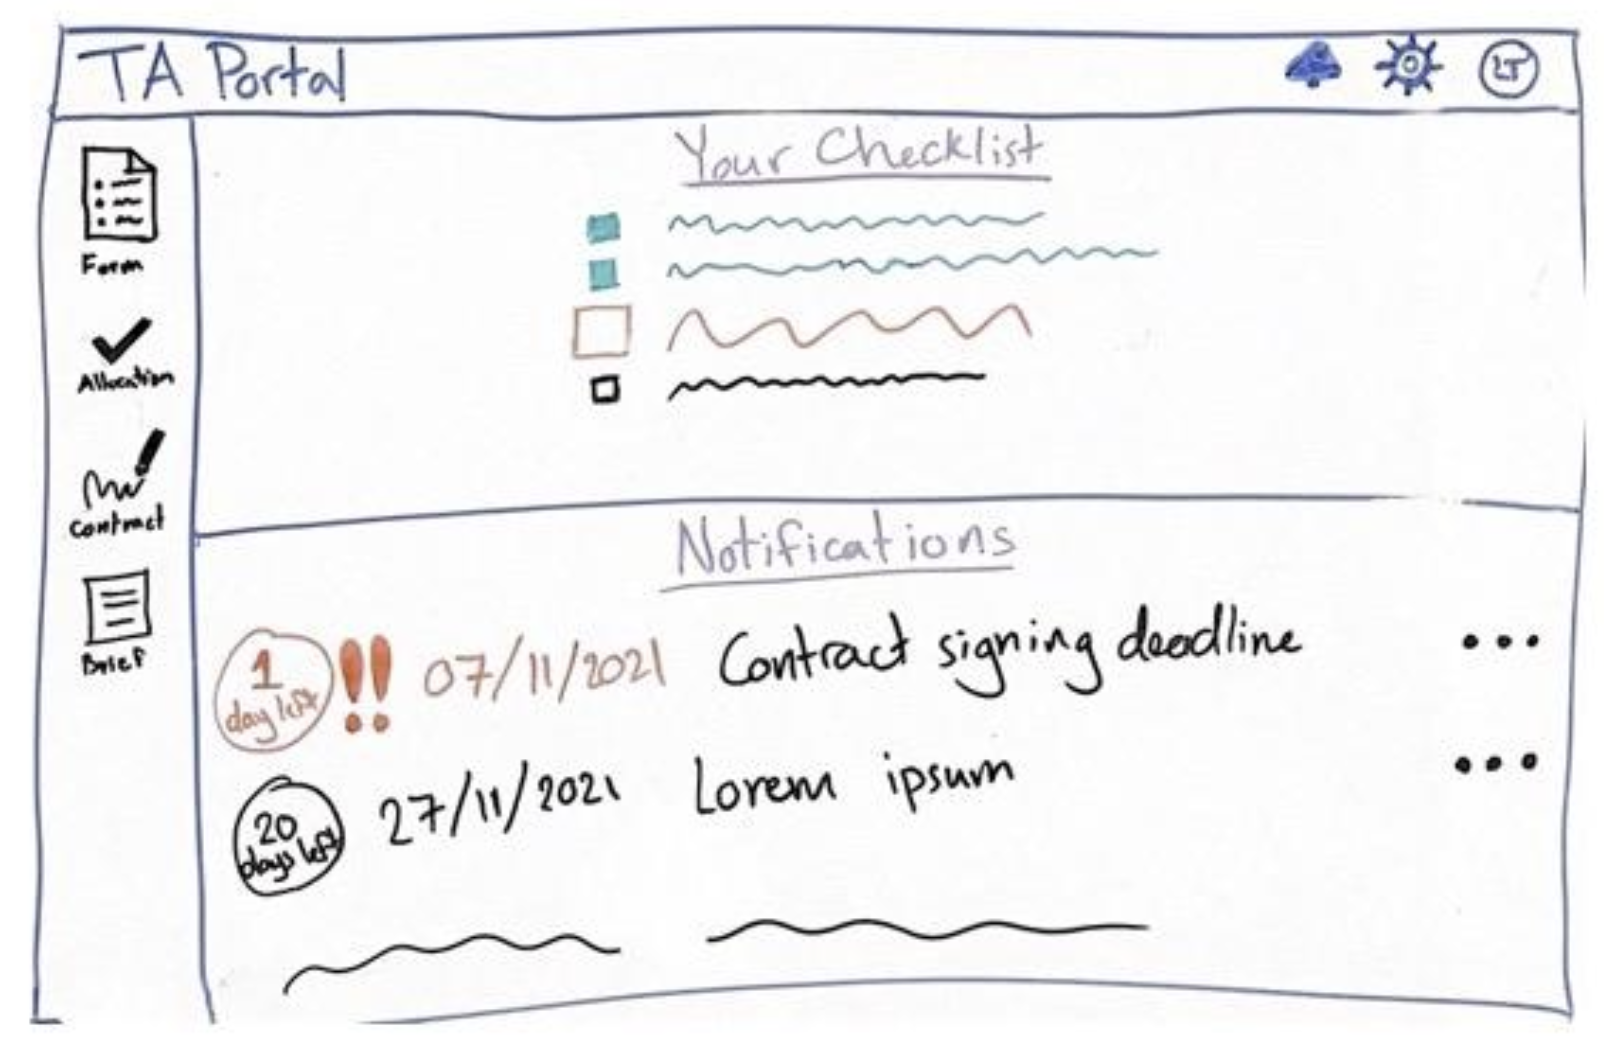 TA Portal
LT
Form
Allocation
Contract
Brief
Your Checklist
Notifications
1 day left !! 07/11/2021 Contract signing deadline ...
20 days left 27/11/2021 Lorem ipsum ...